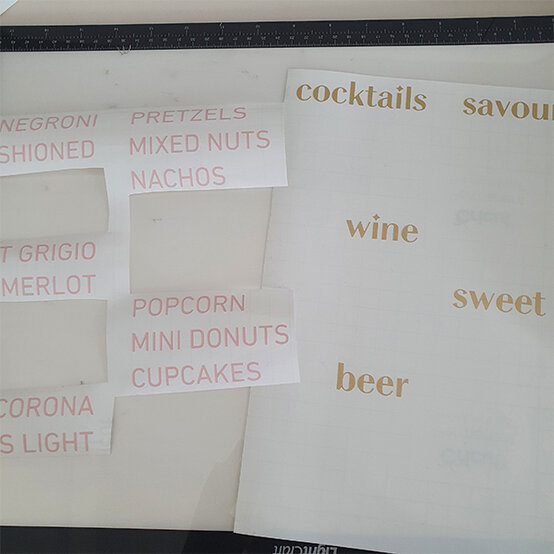 NEGRONI
SHIONED
T GRIGIO
MERLOT
CORONA
S LIGHT
PRETZELS
MIXED NUTS
NACHOS
POPCORN
MINI DONUTS
CUPCAKES
cocktails
savour
wine
sweet
beer
LightCraft